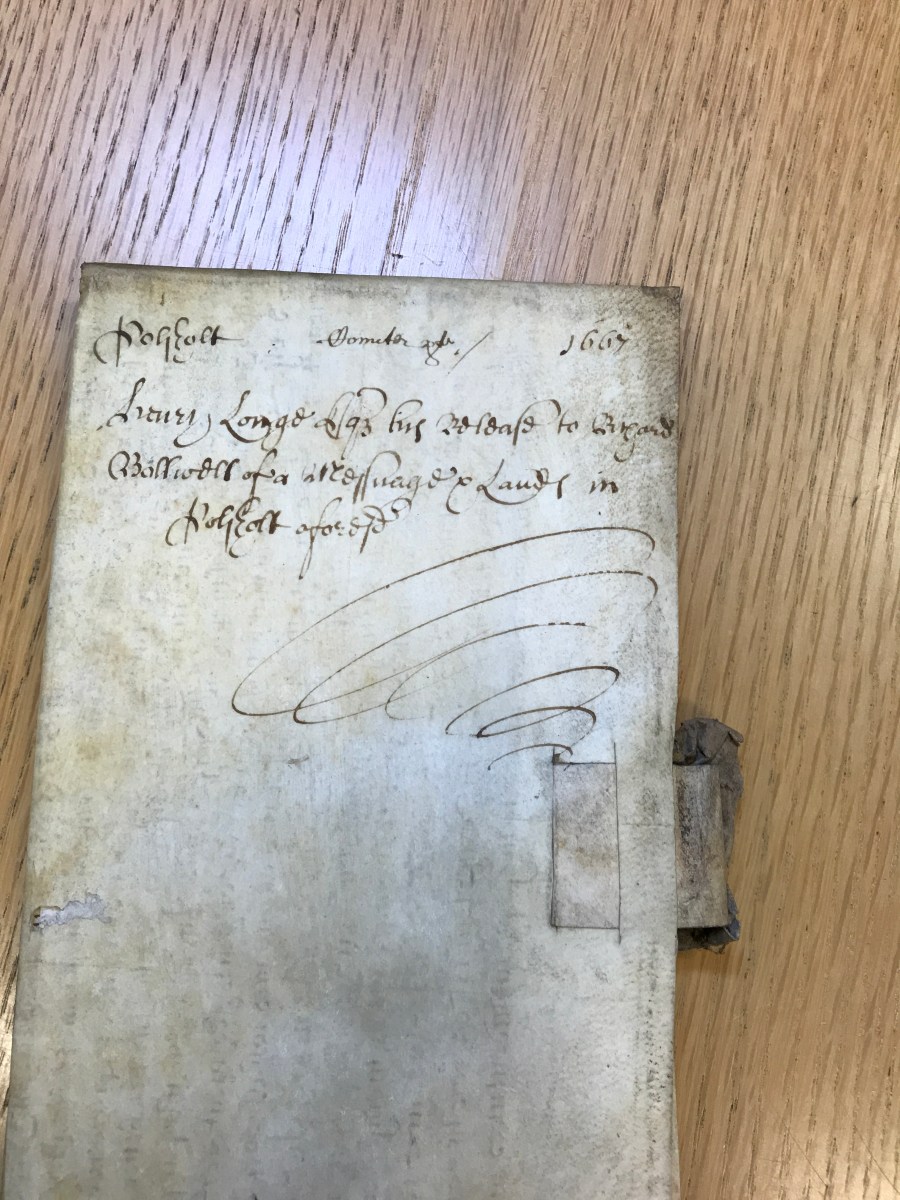 Polsholt 1667
Henry Longe Esqz his Release to Richard
Bollwell of a Messuage & Lands in
Polsholt aforesd